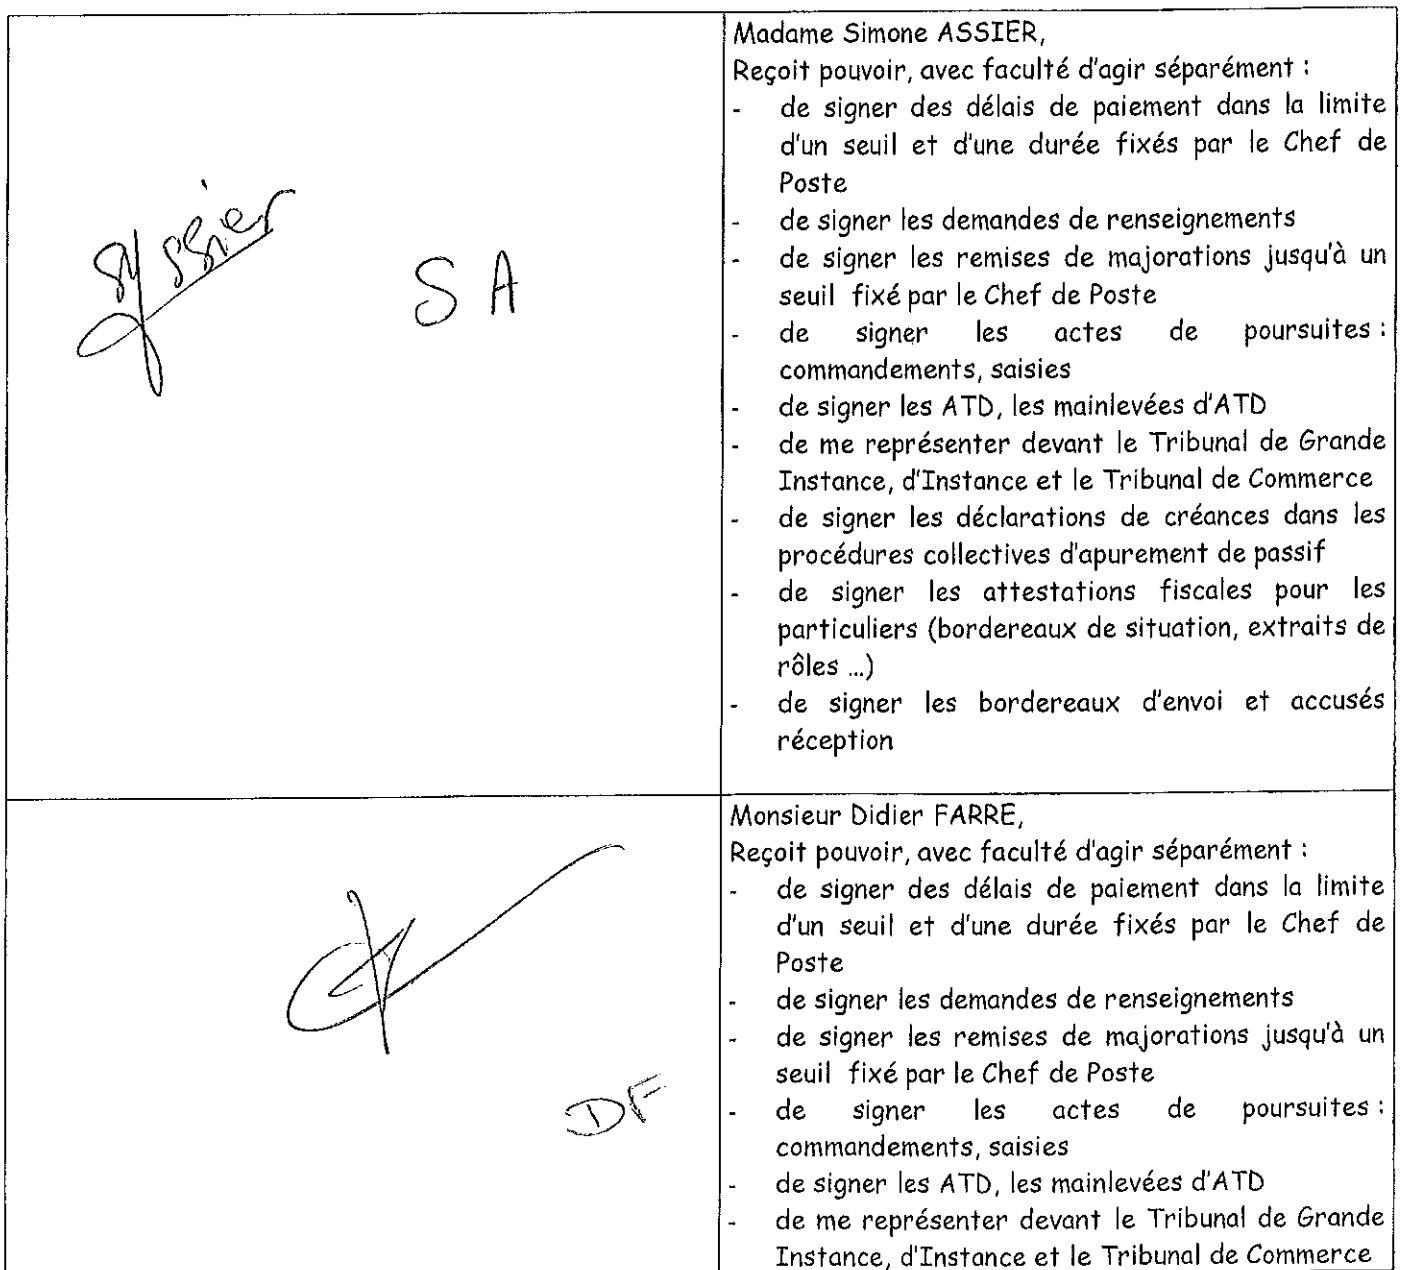 Madame Simone ASSIER,
Reçoit pouvoir, avec faculté d'agir séparément :
- de signer des délais de paiement dans la limite
d'un seuil et d'une durée fixés par le Chef de
Poste
- de signer les demandes de renseignements
- de signer les remises de majorations jusqu'à un
seuil fixé par le Chef de Poste
- de signer les actes de poursuites :
commandements, saisies
- de signer les ATD, les mainlevées d'ATD
- de me représenter devant le Tribunal de Grande
Instance, d'Instance et le Tribunal de Commerce
- de signer les déclarations de créances dans les
procédures collectives d'apurement de passif
- de signer les attestations fiscales pour les
particuliers (bordereaux de situation, extraits de
rôles ...)
- de signer les bordereaux d'envoi et accusés
réception
SAssier
S A
Monsieur Didier FARRE,
Reçoit pouvoir, avec faculté d'agir séparément :
- de signer des délais de paiement dans la limite
d'un seuil et d'une durée fixés par le Chef de
Poste
- de signer les demandes de renseignements
- de signer les remises de majorations jusqu'à un
seuil fixé par le Chef de Poste
- de signer les actes de poursuites :
commandements, saisies
- de signer les ATD, les mainlevées d'ATD
- de me représenter devant le Tribunal de Grande
Instance, d'Instance et le Tribunal de Commerce
DF